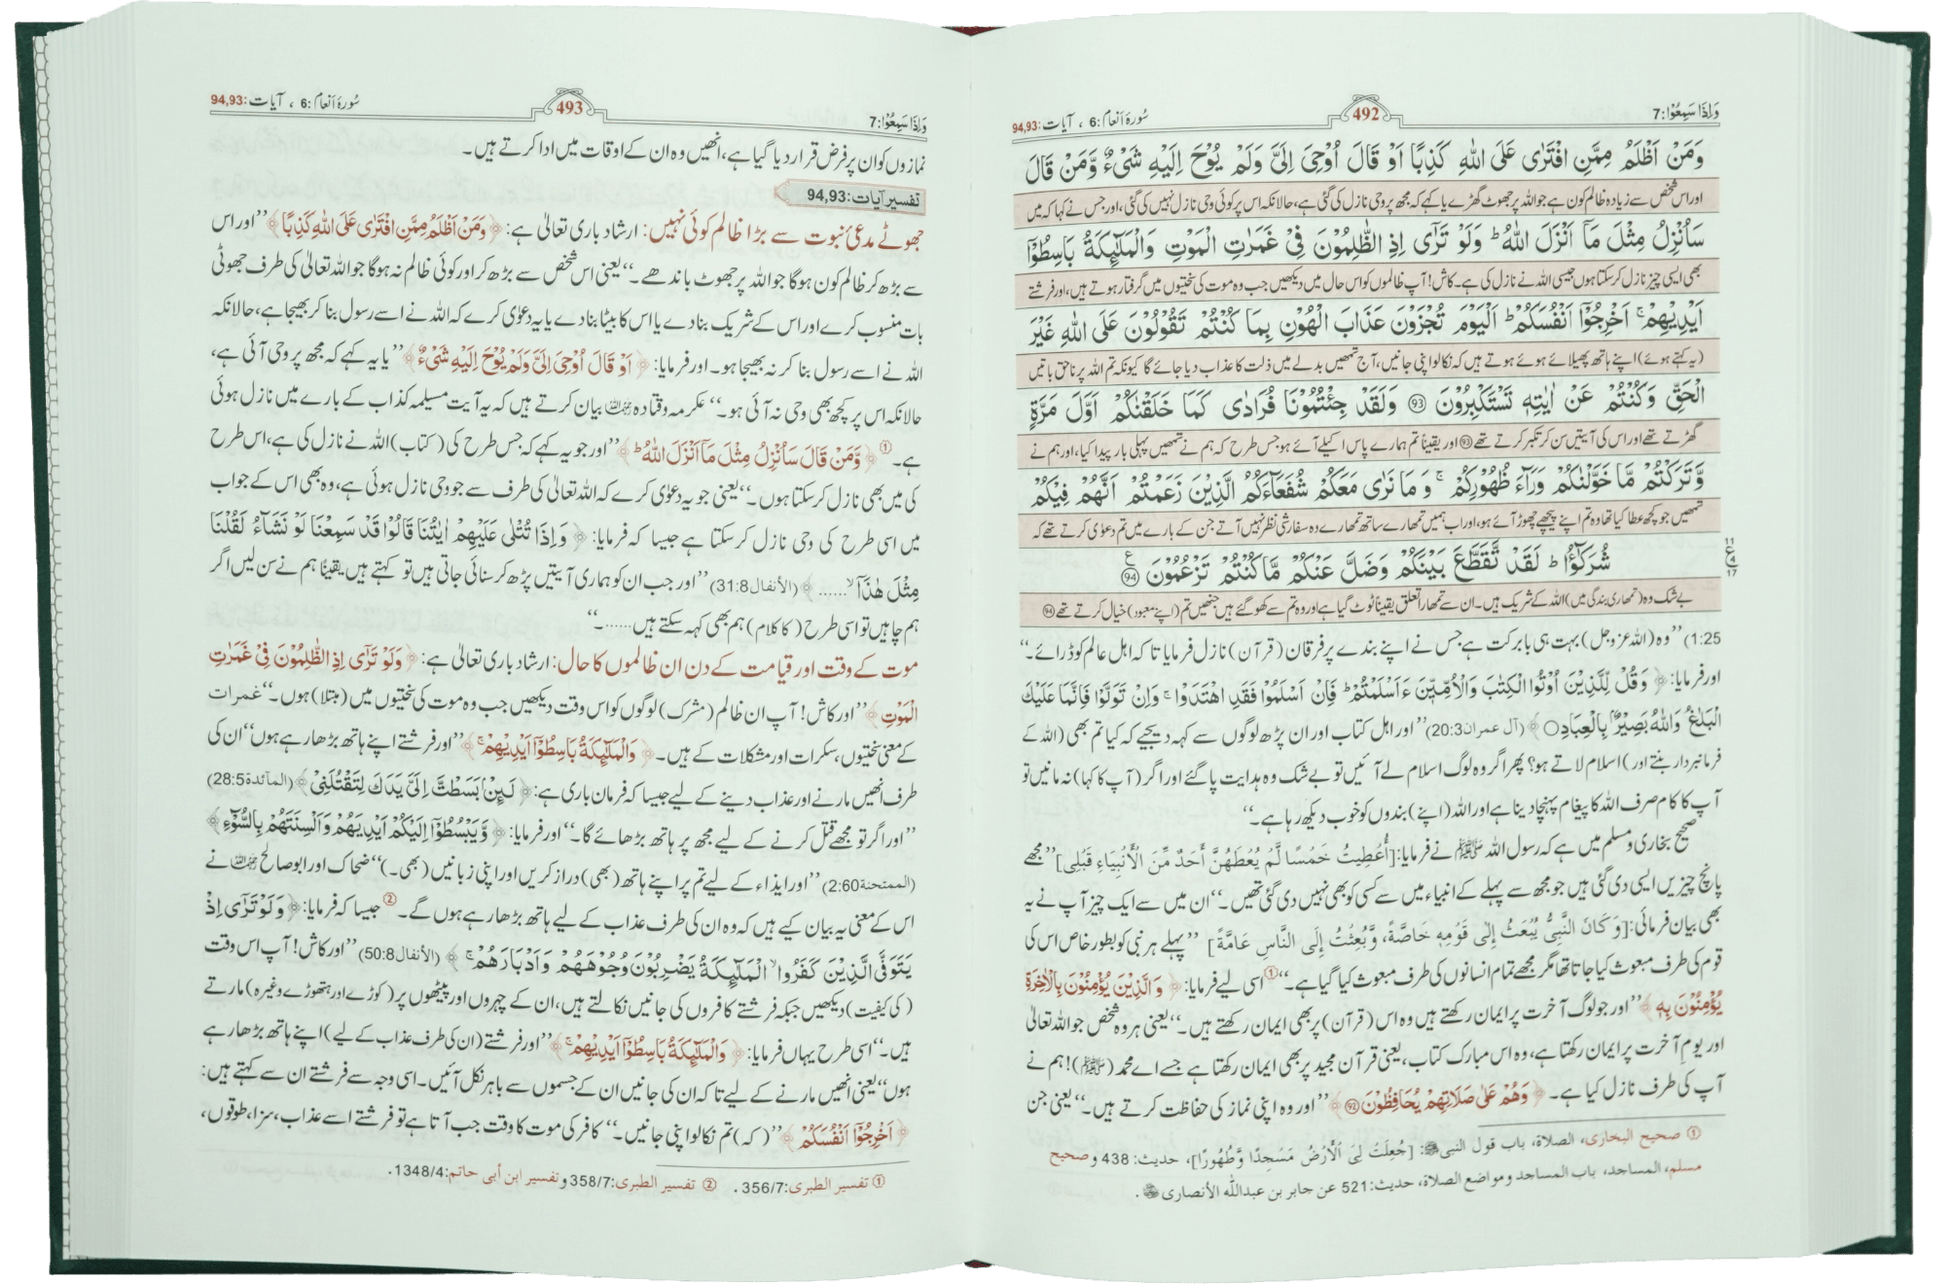 وَاِذَا سَمِعُوْا:7
492
سُورۂ اَنعام :6 ، آیات:94,93
وَمَنْ اَظْلَمُ مِمَّنِ افْتَرٰى عَلَى اللّٰهِ كَذِبًا اَوْ قَالَ اُوْحِىَ اِلَىَّ وَلَمْ يُوْحَ اِلَيْهِ شَىْءٌ وَّمَنْ قَالَ
اور اس شخص سے زیادہ ظالم کون ہے جو اللہ پر جھوٹ گھڑے یا کہے کہ مجھ پر وحی نازل کی گئی ہے، حالانکہ اس پر کوئی وحی نازل نہیں کی گئی، اور جس نے کہا کہ میں
سَاُنْزِلُ مِثْلَ مَاۤ اَنْزَلَ اللّٰهُ ؕ وَلَوْ تَرٰٓى اِذِ الظّٰلِمُوْنَ فِىْ غَمَرٰتِ الْمَوْتِ وَالْمَلٰٓئِكَةُ بَاسِطُوْۤا
بھی ایسی چیز نازل کرسکتا ہوں جیسی اللہ نے نازل کی ہے۔ کاش! آپ ظالموں کو اس حال میں دیکھیں جب وہ موت کی سختیوں میں گرفتار ہوتے ہیں، اور فرشتے
اَيْدِيْهِمْ ۚ اَخْرِجُوْۤا اَنْفُسَكُمْ ؕ اَلْيَوْمَ تُجْزَوْنَ عَذَابَ الْهُوْنِ بِمَا كُنْتُمْ تَقُوْلُوْنَ عَلَى اللّٰهِ غَيْرَ
(یہ کہتے ہوئے) اپنے ہاتھ پھیلائے ہوئے ہوتے ہیں کہ نکالو اپنی جانیں، آج تمھیں بدلے میں ذلت کا عذاب دیا جائے گا کیونکہ تم اللہ پر ناحق باتیں
الْحَقِّ وَكُنْتُمْ عَنْ اٰيٰتِهٖ تَسْتَكْبِرُوْنَ ۝93 وَلَقَدْ جِئْتُمُوْنَا فُرَادٰى كَمَا خَلَقْنٰكُمْ اَوَّلَ مَرَّةٍ
گھڑتے تھے اور اس کی آیتیں سن کر تکبر کرتے تھے ۝93 اور یقیناً تم ہمارے پاس اکیلے آئے ہو جس طرح کہ ہم نے تمھیں پہلی بار پیدا کیا، اور ہم نے
وَّتَرَكْتُمْ مَّا خَوَّلْنٰكُمْ وَرَآءَ ظُهُوْرِكُمْ ۚ وَمَا نَرٰى مَعَكُمْ شُفَعَآءَكُمُ الَّذِيْنَ زَعَمْتُمْ اَنَّهُمْ فِيْكُمْ
تمھیں جو کچھ عطا کیا تھا وہ تم اپنے پیچھے چھوڑ آئے ہو، اور اب ہمیں تمھارے ساتھ تمھارے وہ سفارشی نظر نہیں آتے جن کے بارے میں تم دعوٰی کرتے تھے کہ
شُرَكٰٓؤُا ؕ لَقَدْ تَّقَطَّعَ بَيْنَكُمْ وَضَلَّ عَنْكُمْ مَّا كُنْتُمْ تَزْعُمُوْنَ ۝94
بے شک وہ (تمھاری بندگی میں) اللہ کے شریک ہیں۔ ان سے تمھارا تعلق یقیناً ٹوٹ گیا ہے اور وہ تم سے کھو گئے ہیں جنھیں تم (اپنے معبود) خیال کرتے تھے ۝94
1:25) ’’وہ (اللہ عزوجل) بہت ہی بابرکت ہے جس نے اپنے بندے پر فرقان (قرآن) نازل فرمایا تاکہ اہل عالم کو ڈرائے۔‘‘
اور فرمایا: ﴿ وَقُلْ لِّلَّذِيْنَ اُوْتُوا الْكِتٰبَ وَالْاُمِّيّٖنَ ءَاَسْلَمْتُمْ ؕ فَاِنْ اَسْلَمُوْا فَقَدِ اهْتَدَوْا ۚ وَاِنْ تَوَلَّوْا فَاِنَّمَا عَلَيْكَ
الْبَلٰغُ ؕ وَاللّٰهُ بَصِيْرٌۢ بِالْعِبَادِ ۝﴾ (آل عمران20:3) ’’اور اہل کتاب اور ان پڑھ لوگوں سے کہہ دیجیے کہ کیا تم بھی (اللہ کے
فرمانبردار بنتے اور) اسلام لاتے ہو؟ پھر اگر وہ لوگ اسلام لے آئیں تو بے شک وہ ہدایت پا گئے اور اگر (آپ کا کہا) نہ مانیں تو
آپ کا کام صرف اللہ کا پیغام پہنچا دینا ہے اور اللہ (اپنے) بندوں کو خوب دیکھ رہا ہے۔‘‘
صحیح بخاری و مسلم میں ہے کہ رسول اللہ ﷺ نے فرمایا: [أُعْطِيتُ خَمْسًا لَّمْ يُعْطَهُنَّ أَحَدٌ مِّنَ الْأَنْبِيَاءِ قَبْلِي] ’’مجھے
پانچ چیزیں ایسی دی گئی ہیں جو مجھ سے پہلے کے انبیاء میں سے کسی کو بھی نہیں دی گئی تھیں۔‘‘ ان میں سے ایک چیز آپ نے یہ
بھی بیان فرمائی: [وَكَانَ النَّبِيُّ يُبْعَثُ إِلٰى قَوْمِهٖ خَاصَّةً، وَّبُعِثْتُ إِلَى النَّاسِ عَامَّةً] ’’پہلے ہر نبی کو بطور خاص اس کی
قوم کی طرف مبعوث کیا جاتا تھا مگر مجھے تمام انسانوں کی طرف مبعوث کیا گیا ہے۔‘‘① اسی لیے فرمایا: ﴿ وَالَّذِيْنَ يُؤْمِنُوْنَ بِالْاٰخِرَةِ
يُؤْمِنُوْنَ بِهٖ ﴾ ’’اور جو لوگ آخرت پر ایمان رکھتے ہیں وہ اس (قرآن) پر بھی ایمان رکھتے ہیں۔‘‘ یعنی ہر وہ شخص جو اللہ تعالیٰ
اور یوم آخرت پر ایمان رکھتا ہے، وہ اس مبارک کتاب، یعنی قرآن مجید پر بھی ایمان رکھتا ہے جسے اے محمد (ﷺ)! ہم نے
آپ کی طرف نازل کیا ہے۔ ﴿ وَهُمْ عَلٰى صَلَاتِهِمْ يُحَافِظُوْنَ ۝92﴾ ’’اور وہ اپنی نماز کی حفاظت کرتے ہیں۔‘‘ یعنی جن
① صحيح البخاري، الصلاة، باب قول النبي ﷺ: [جُعِلَتْ لِيَ الْأَرْضُ مَسْجِدًا وَّطَهُورًا]، حديث: 438 و صحيح
مسلم، المساجد، باب المساجد ومواضع الصلاة، حديث:521 عن جابر بن عبدالله الأنصاري ۔
وَاِذَا سَمِعُوْا:7
493
سُورۂ اَنعام :6 ، آیات:94,93
نمازوں کو ان پر فرض قرار دیا گیا ہے، انھیں وہ ان کے اوقات میں ادا کرتے ہیں۔
تفسیر آیات:94,93
جھوٹے مدعیٔ نبوت سے بڑا ظالم کوئی نہیں: ارشاد باری تعالیٰ ہے: ﴿ وَمَنْ اَظْلَمُ مِمَّنِ افْتَرٰى عَلَى اللّٰهِ كَذِبًا ﴾ ’’اور اس
سے بڑھ کر ظالم کون ہوگا جو اللہ پر جھوٹ باندھے۔‘‘ یعنی اس شخص سے بڑھ کر اور کوئی ظالم نہ ہوگا جو اللہ تعالیٰ کی طرف جھوٹی
بات منسوب کرے اور اس کے شریک بنا دے یا اس کا بیٹا بنا دے یا یہ دعوٰی کرے کہ اللہ نے اسے رسول بنا کر بھیجا ہے، حالانکہ
اللہ نے اسے رسول بنا کر نہ بھیجا ہو۔ اور فرمایا: ﴿ اَوْ قَالَ اُوْحِىَ اِلَىَّ وَلَمْ يُوْحَ اِلَيْهِ شَىْءٌ ﴾ ’’یا یہ کہے کہ مجھ پر وحی آئی ہے،
حالانکہ اس پر کچھ بھی وحی نہ آئی ہو۔‘‘ عکرمہ وقتادہ بیان کرتے ہیں کہ یہ آیت مسیلمہ کذاب کے بارے میں نازل ہوئی
ہے۔① ﴿ وَّمَنْ قَالَ سَاُنْزِلُ مِثْلَ مَاۤ اَنْزَلَ اللّٰهُ ؕ﴾ ’’اور جو یہ کہے کہ جس طرح کی (کتاب) اللہ نے نازل کی ہے، اس طرح
کی میں بھی نازل کرسکتا ہوں۔‘‘ یعنی جو یہ دعوٰی کرے کہ اللہ تعالیٰ کی طرف سے جو وحی نازل ہوئی ہے، وہ بھی اس کے جواب
میں اسی طرح کی وحی نازل کرسکتا ہے جیسا کہ فرمایا: ﴿ وَاِذَا تُتْلٰى عَلَيْهِمْ اٰيٰتُنَا قَالُوْا قَدْ سَمِعْنَا لَوْ نَشَآءُ لَقُلْنَا
مِثْلَ هٰذَاۤ ۙ ...... ﴾ (الأنفال31:8) ’’اور جب ان کو ہماری آیتیں پڑھ کر سنائی جاتی ہیں تو کہتے ہیں یقیناً ہم نے سن لیں اگر
ہم چاہیں تو اسی طرح (کا کلام) ہم بھی کہہ سکتے ہیں......۔‘‘
موت کے وقت اور قیامت کے دن ان ظالموں کا حال: ارشاد باری تعالیٰ ہے: ﴿ وَلَوْ تَرٰٓى اِذِ الظّٰلِمُوْنَ فِىْ غَمَرٰتِ
الْمَوْتِ ﴾ ’’اور کاش! آپ ان ظالم (مشرک) لوگوں کو اس وقت دیکھیں جب وہ موت کی سختیوں میں (مبتلا) ہوں۔‘‘ غمرات
کے معنی سختیوں، سکرات اور مشکلات کے ہیں۔ ﴿ وَالْمَلٰٓئِكَةُ بَاسِطُوْۤا اَيْدِيْهِمْ ۚ﴾ ’’اور فرشتے اپنے ہاتھ بڑھا رہے ہوں‘‘ ان کی
طرف انھیں مارنے اور عذاب دینے کے لیے جیسا کہ فرمان باری ہے: ﴿ لَئِنْۢ بَسَطْتَّ اِلَىَّ يَدَكَ لِتَقْتُلَنِىْ ﴾ (المآئدة28:5)
’’اور اگر تو مجھے قتل کرنے کے لیے مجھ پر ہاتھ بڑھائے گا۔‘‘ اور فرمایا: ﴿ وَّيَبْسُطُوْۤا اِلَيْكُمْ اَيْدِيَهُمْ وَاَلْسِنَتَهُمْ بِالسُّوْٓءِ ﴾
(الممتحنة2:60) ’’اور ایذاء کے لیے تم پر اپنے ہاتھ (بھی) دراز کریں اور اپنی زبانیں (بھی۔)‘‘ ضحاک اور ابوصالح نے
اس کے معنی یہ بیان کیے ہیں کہ وہ ان کی طرف عذاب کے لیے ہاتھ بڑھا رہے ہوں گے۔② جیسا کہ فرمایا: ﴿ وَلَوْ تَرٰٓى اِذْ
يَتَوَفَّى الَّذِيْنَ كَفَرُوا ۙ الْمَلٰٓئِكَةُ يَضْرِبُوْنَ وُجُوْهَهُمْ وَاَدْبَارَهُمْ ۚ ﴾ (الأنفال50:8) ’’اور کاش! آپ اس وقت
(کی کیفیت) دیکھیں جبکہ فرشتے کافروں کی جانیں نکالتے ہیں، ان کے چہروں اور پیٹھوں پر (کوڑے اور ہتھوڑے وغیرہ) مارتے
ہیں۔‘‘ اسی طرح یہاں فرمایا: ﴿ وَالْمَلٰٓئِكَةُ بَاسِطُوْۤا اَيْدِيْهِمْ ۚ﴾ ’’اور فرشتے (ان کی طرف عذاب کے لیے) اپنے ہاتھ بڑھا رہے
ہوں‘‘ یعنی انھیں مارنے کے لیے تاکہ ان کی جانیں ان کے جسموں سے باہر نکل آئیں۔ اسی وجہ سے فرشتے ان سے کہتے ہیں:
﴿ اَخْرِجُوْۤا اَنْفُسَكُمْ ﴾ ’’(کہ) تم نکالو اپنی جانیں۔‘‘ کافر کی موت کا وقت جب آتا ہے تو فرشتے اسے عذاب، سزا، طوقوں،
① تفسير الطبري:356/7. ② تفسير الطبري:358/7 وتفسير ابن أبي حاتم:1348/4.